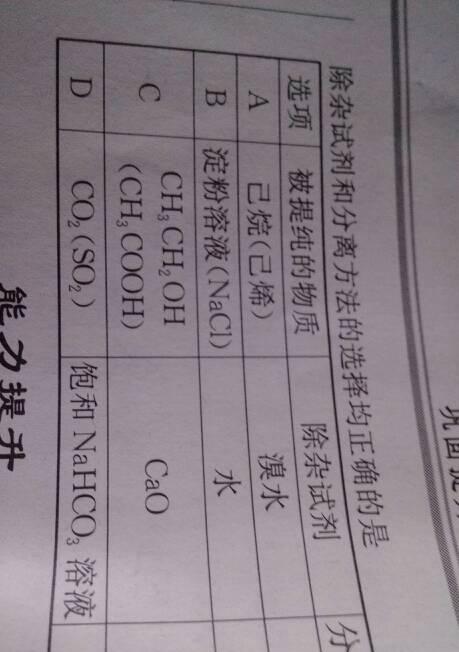 巩固提升
除杂试剂和分离方法的选择均正确的是
选项 被提纯的物质 除杂试剂 分
A 己烷(己烯) 溴水
B 淀粉溶液(NaCl) 水
C CH₃CH₂OH
(CH₃COOH) CaO
D CO₂(SO₂) 饱和 NaHCO₃ 溶液
能力提升